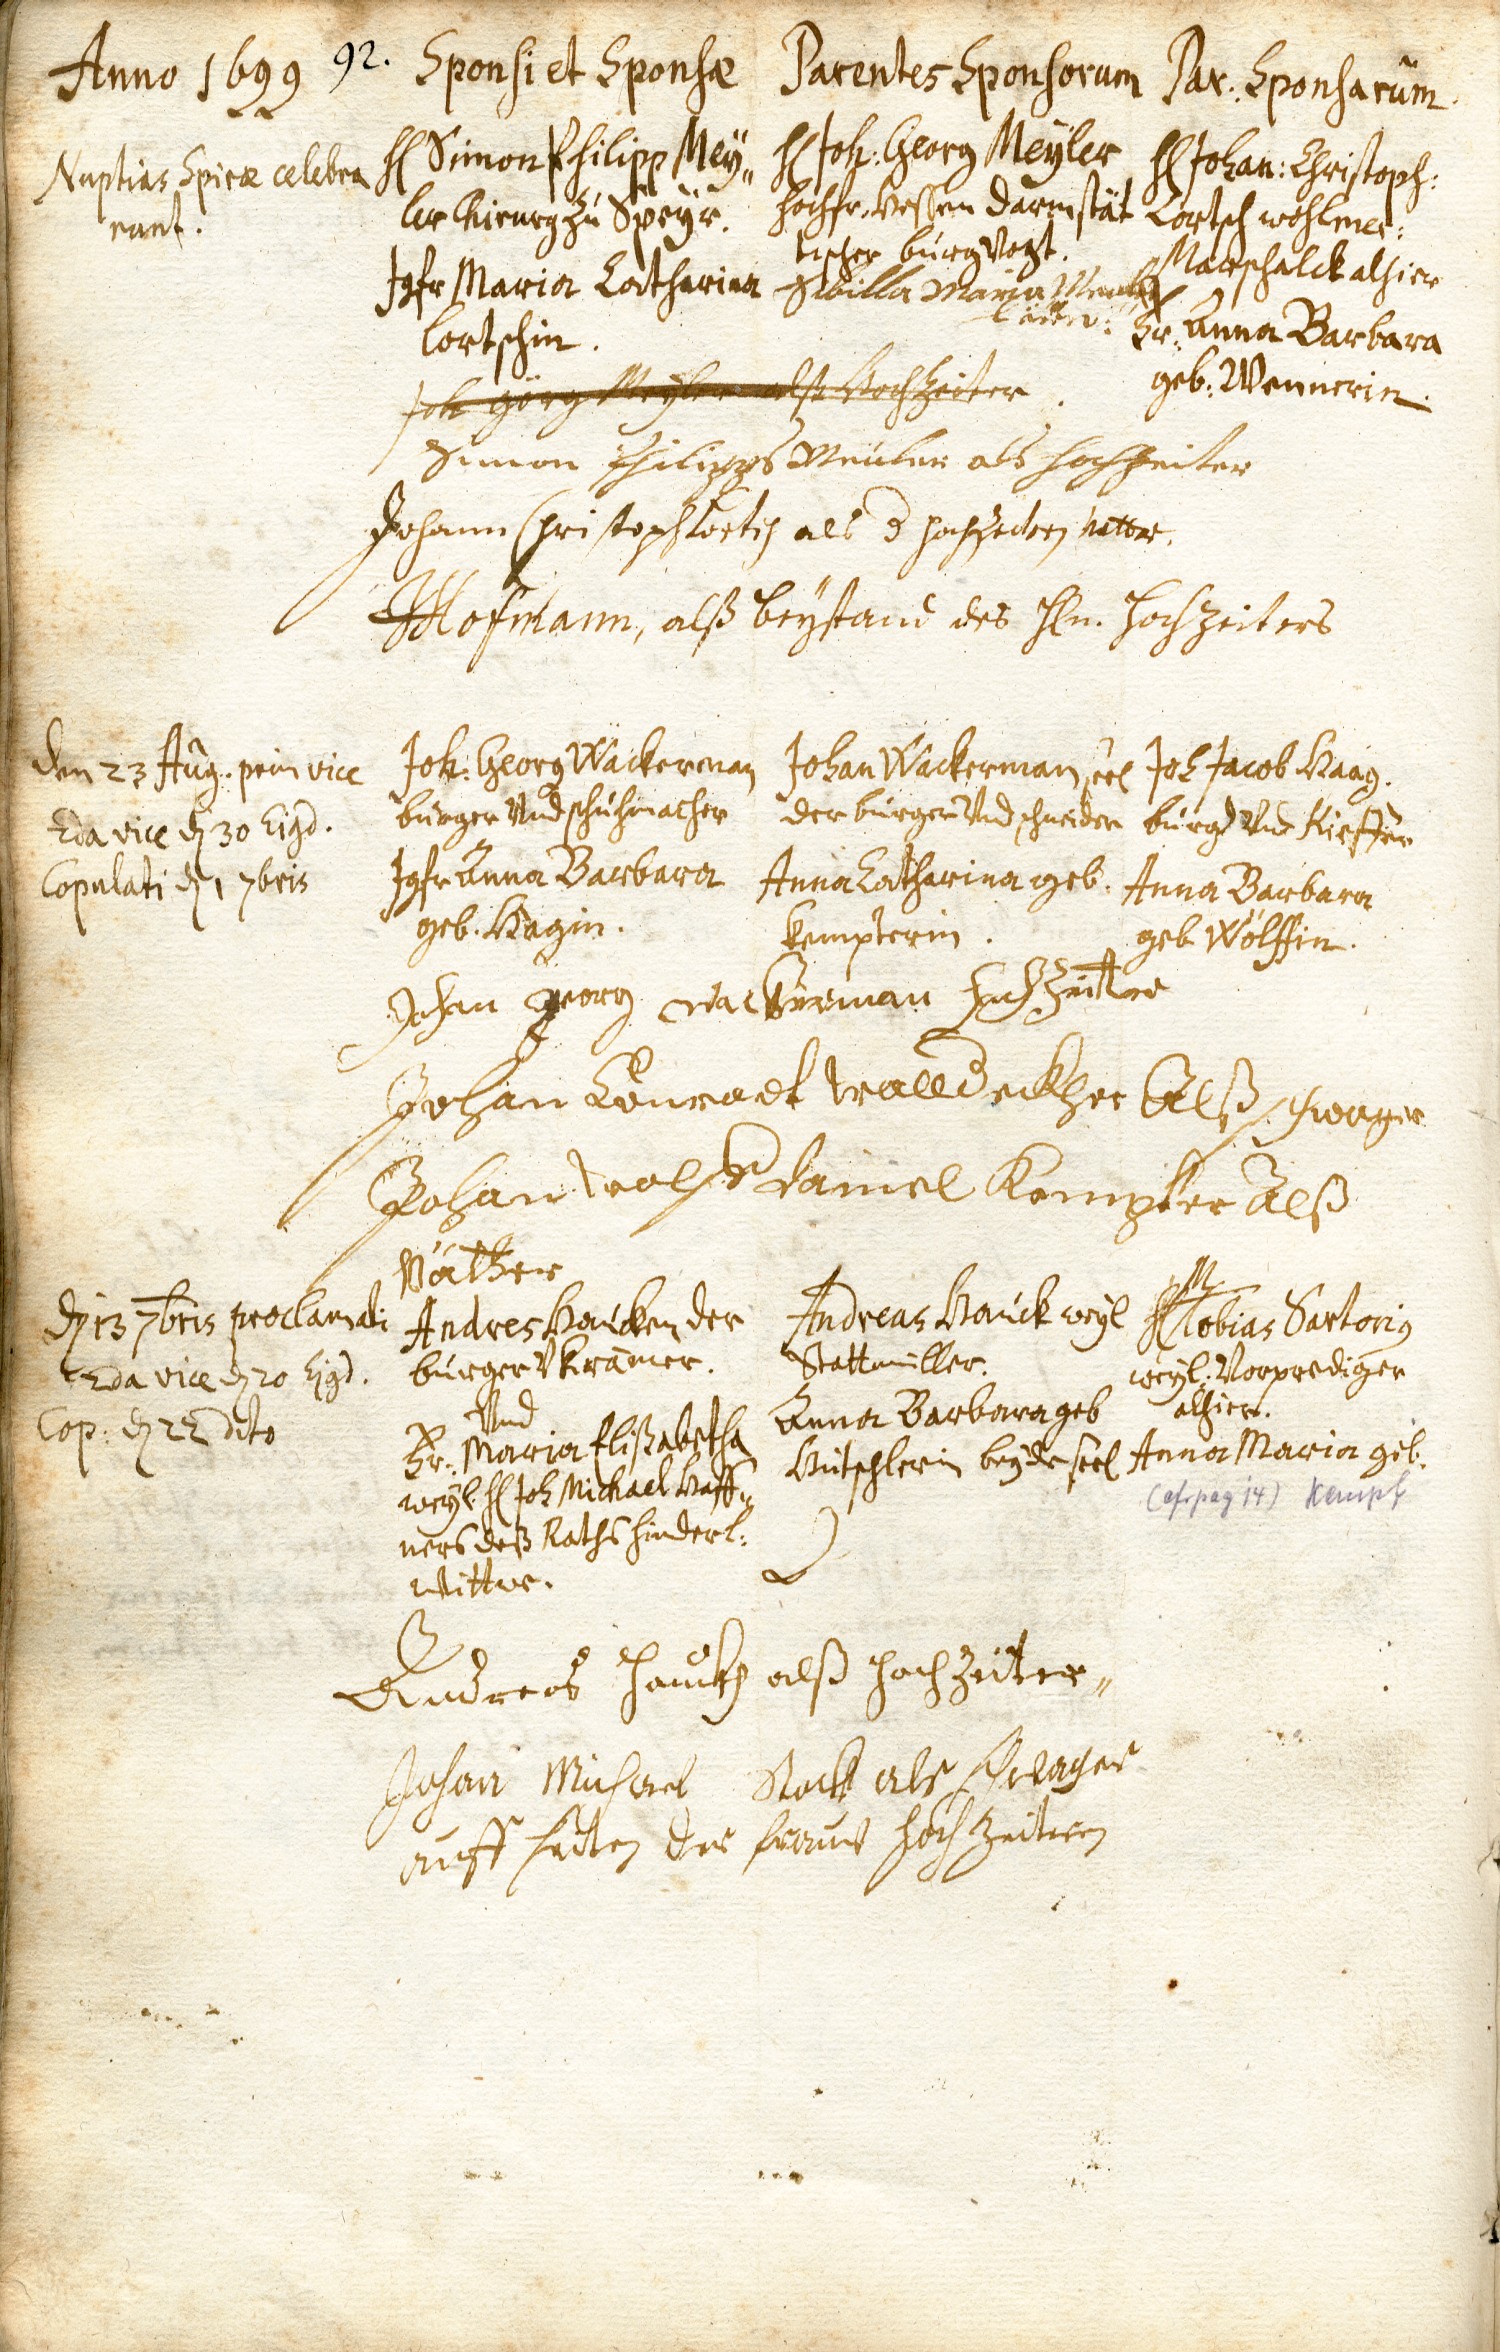 Anno 1699
92.
Sponsi et Sponsæ
Parentes Sponsorum
Par: Sponsarum.
Nuptias Spiræ celebra
runt.
H Simon Philipp Mey„
ler Chirurg zu Speyr.
Jgfr Maria Catharina
Cortschin.
H Joh: Georg Meyler
hochfr. Hessen Darmstät
tischer burgVogt.
Sibilla Maria
H Johan: Christoph:
Cortsch wohlmer:
Marschalck alhier
Fr. Anna Barbara
geb: Wennerin.
Joh görg Meyler alß Hochzeiter
Simon Philipps Meuler als Hochzeiter
Johann Christoph Cortsch als d hochzeiterin vatter.
JHofmann, alß beystand des Hln. Hochzeiters
den 23 Aug. prim vice
2da vice dn 30 Eigd.
Copulati dn 1 7bris
Joh: Georg Wackerman
burger Vnd schuhmacher
Jgfr Anna Barbara
geb. Hagin.
Johan Wackerman seel
der burger Vnd schneider
Anna Catharina geb.
Kempterin.
Joh Jacob Haag.
burgr Vnd Kieffer
Anna Barbara
geb Wölffin.
Johan georg wackerman hochzeitter
Johan Conradt walldeckher Alß schwager
Johan wolff Daniel Kempter Alß
Vätter
dn 13 7bris proclamati
2da vice dn 20 Eigd.
Cop: dn 22 dito
Andres Haucken der
burger V Kramer.
Vnd
Fr. Maria Elisabetha
weyl. H Joh Michael Haff„
ners deß Raths hinderl:
wittwe.
Andreas Hauck weyl
Stattmüller.
Anna Barbara geb
Hütschlerin beyde seel
M
H Tobias Sartorius
weyl: Vorprediger
alhier.
Anna Maria geb.
(cf. pag 14) Kempf
Andreas Hauck alß Hochzeiter„
Johan Michael Stock als schwager
auff seiten der frauw hochzeiterin